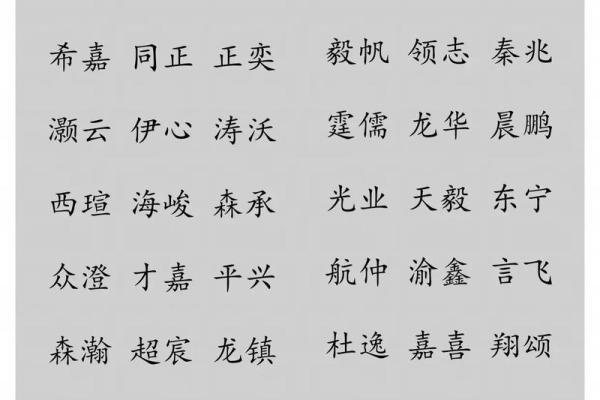 希嘉 同正 正奕 毅帆 领志 秦兆
灏云 伊心 涛沃 霆儒 龙华 晨鹏
西瑄 海峻 森承 光业 天毅 东宁
众澄 才嘉 平兴 航仲 渝鑫 言飞
森瀚 超宸 龙镇 杜逸 嘉喜 翔颂